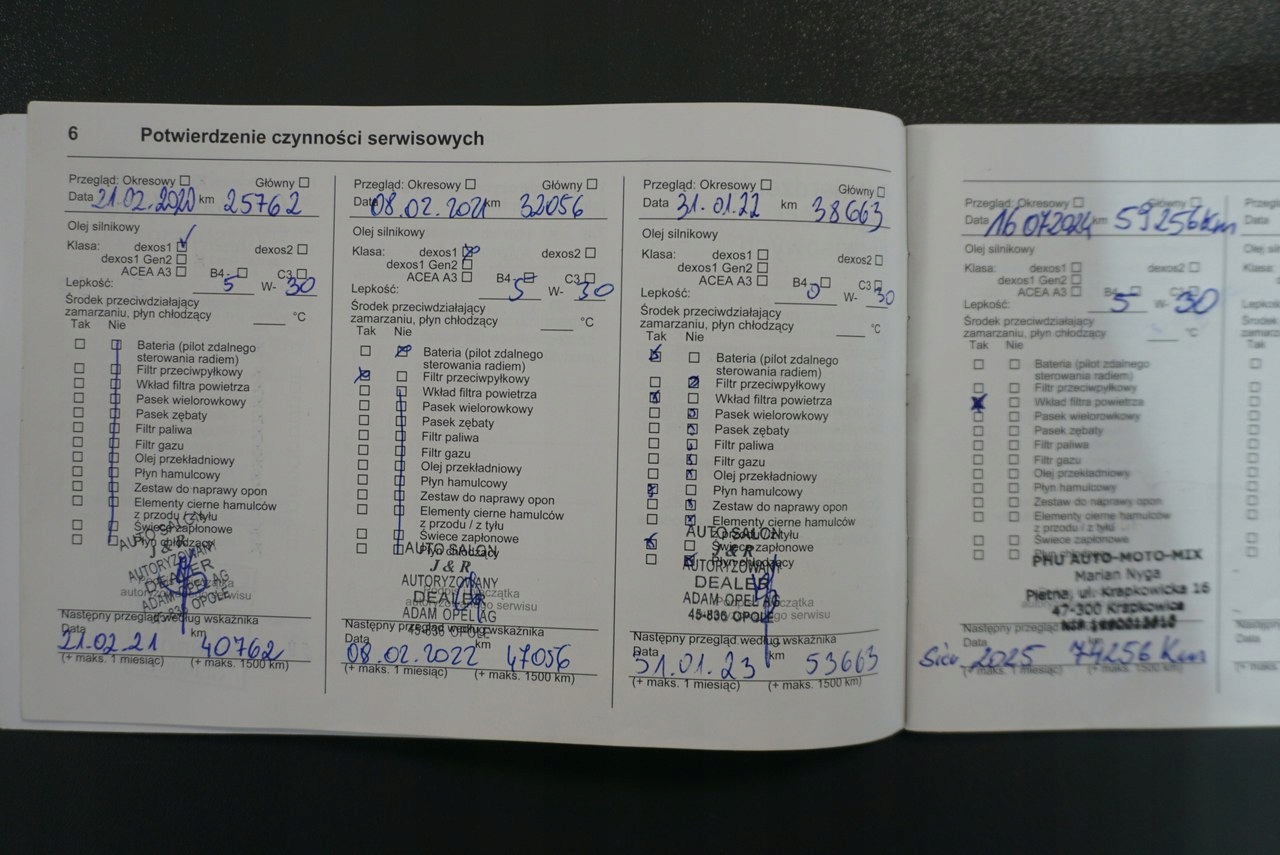 6 Potwierdzenie czynności serwisowych
Przegląd: Okresowy Główny
Data 21.02.2020 km 25762
Olej silnikowy
Klasa: dexos1 dexos2
dexos1 Gen2
ACEA A3 B4 C3
Lepkość: 5 W- 30
Środek przeciwdziałający
zamarzaniu, płyn chłodzący °C
Tak Nie
Bateria (pilot zdalnego
sterowania radiem)
Filtr przeciwpyłkowy
Wkład filtra powietrza
Pasek wielorowkowy
Pasek zębaty
Filtr paliwa
Filtr gazu
Olej przekładniowy
Płyn hamulcowy
Zestaw do naprawy opon
Elementy cierne hamulców
z przodu / z tyłu
Świece zapłonowe
Płyn chłodzący
AUTO SALON
J & R
AUTORYZOWANY
DEALER
ADAM OPEL AG
45-836 OPOLE
Następny przegląd według wskaźnika
Data km
21.02.21 40762
(+ maks. 1 miesiąc) (+ maks. 1500 km)
Przegląd: Okresowy Główny
Data 08.02.2021 km 32056
Olej silnikowy
Klasa: dexos1 dexos2
dexos1 Gen2
ACEA A3 B4 C3
Lepkość: 5 W- 30
Środek przeciwdziałający
zamarzaniu, płyn chłodzący °C
Tak Nie
Bateria (pilot zdalnego
sterowania radiem)
Filtr przeciwpyłkowy
Wkład filtra powietrza
Pasek wielorowkowy
Pasek zębaty
Filtr paliwa
Filtr gazu
Olej przekładniowy
Płyn hamulcowy
Zestaw do naprawy opon
Elementy cierne hamulców
z przodu / z tyłu
Świece zapłonowe
Płyn chłodzący
AUTO SALON
J & R
AUTORYZOWANY
DEALER
ADAM OPEL AG
45-836 OPOLE
Następny przegląd według wskaźnika
Data km
08.02.2022 47056
(+ maks. 1 miesiąc) (+ maks. 1500 km)
Przegląd: Okresowy Główny
Data 31.01.22 km 38663
Olej silnikowy
Klasa: dexos1 dexos2
dexos1 Gen2
ACEA A3 B4 C3
Lepkość: 0 W- 30
Środek przeciwdziałający
zamarzaniu, płyn chłodzący °C
Tak Nie
Bateria (pilot zdalnego
sterowania radiem)
Filtr przeciwpyłkowy
Wkład filtra powietrza
Pasek wielorowkowy
Pasek zębaty
Filtr paliwa
Filtr gazu
Olej przekładniowy
Płyn hamulcowy
Zestaw do naprawy opon
Elementy cierne hamulców
z przodu / z tyłu
Świece zapłonowe
Płyn chłodzący
AUTO SALON
J & R
AUTORYZOWANY
DEALER
ADAM OPEL AG
45-836 OPOLE
Następny przegląd według wskaźnika
Data km
31.01.23 53663
(+ maks. 1 miesiąc) (+ maks. 1500 km)
Przegląd: Okresowy Główny
Data 16072024 km 59256km
Olej silnikowy
Klasa: dexos1 dexos2
dexos1 Gen2
ACEA A3 B4 C3
Lepkość: 5 W- 30
Środek przeciwdziałający
zamarzaniu, płyn chłodzący °C
Tak Nie
Bateria (pilot zdalnego
sterowania radiem)
Filtr przeciwpyłkowy
Wkład filtra powietrza
Pasek wielorowkowy
Pasek zębaty
Filtr paliwa
Filtr gazu
Olej przekładniowy
Płyn hamulcowy
Zestaw do naprawy opon
Elementy cierne hamulców
z przodu / z tyłu
Świece zapłonowe
PHU AUTO-MOTO-MIX
Marian Nyga
Pietna, ul. Krapkowicka 16
47-300 Krapkowice
Następny przegląd
Data
2025 74256 Km
(+ maks. 1 miesiąc) (+ maks. 1500 km)